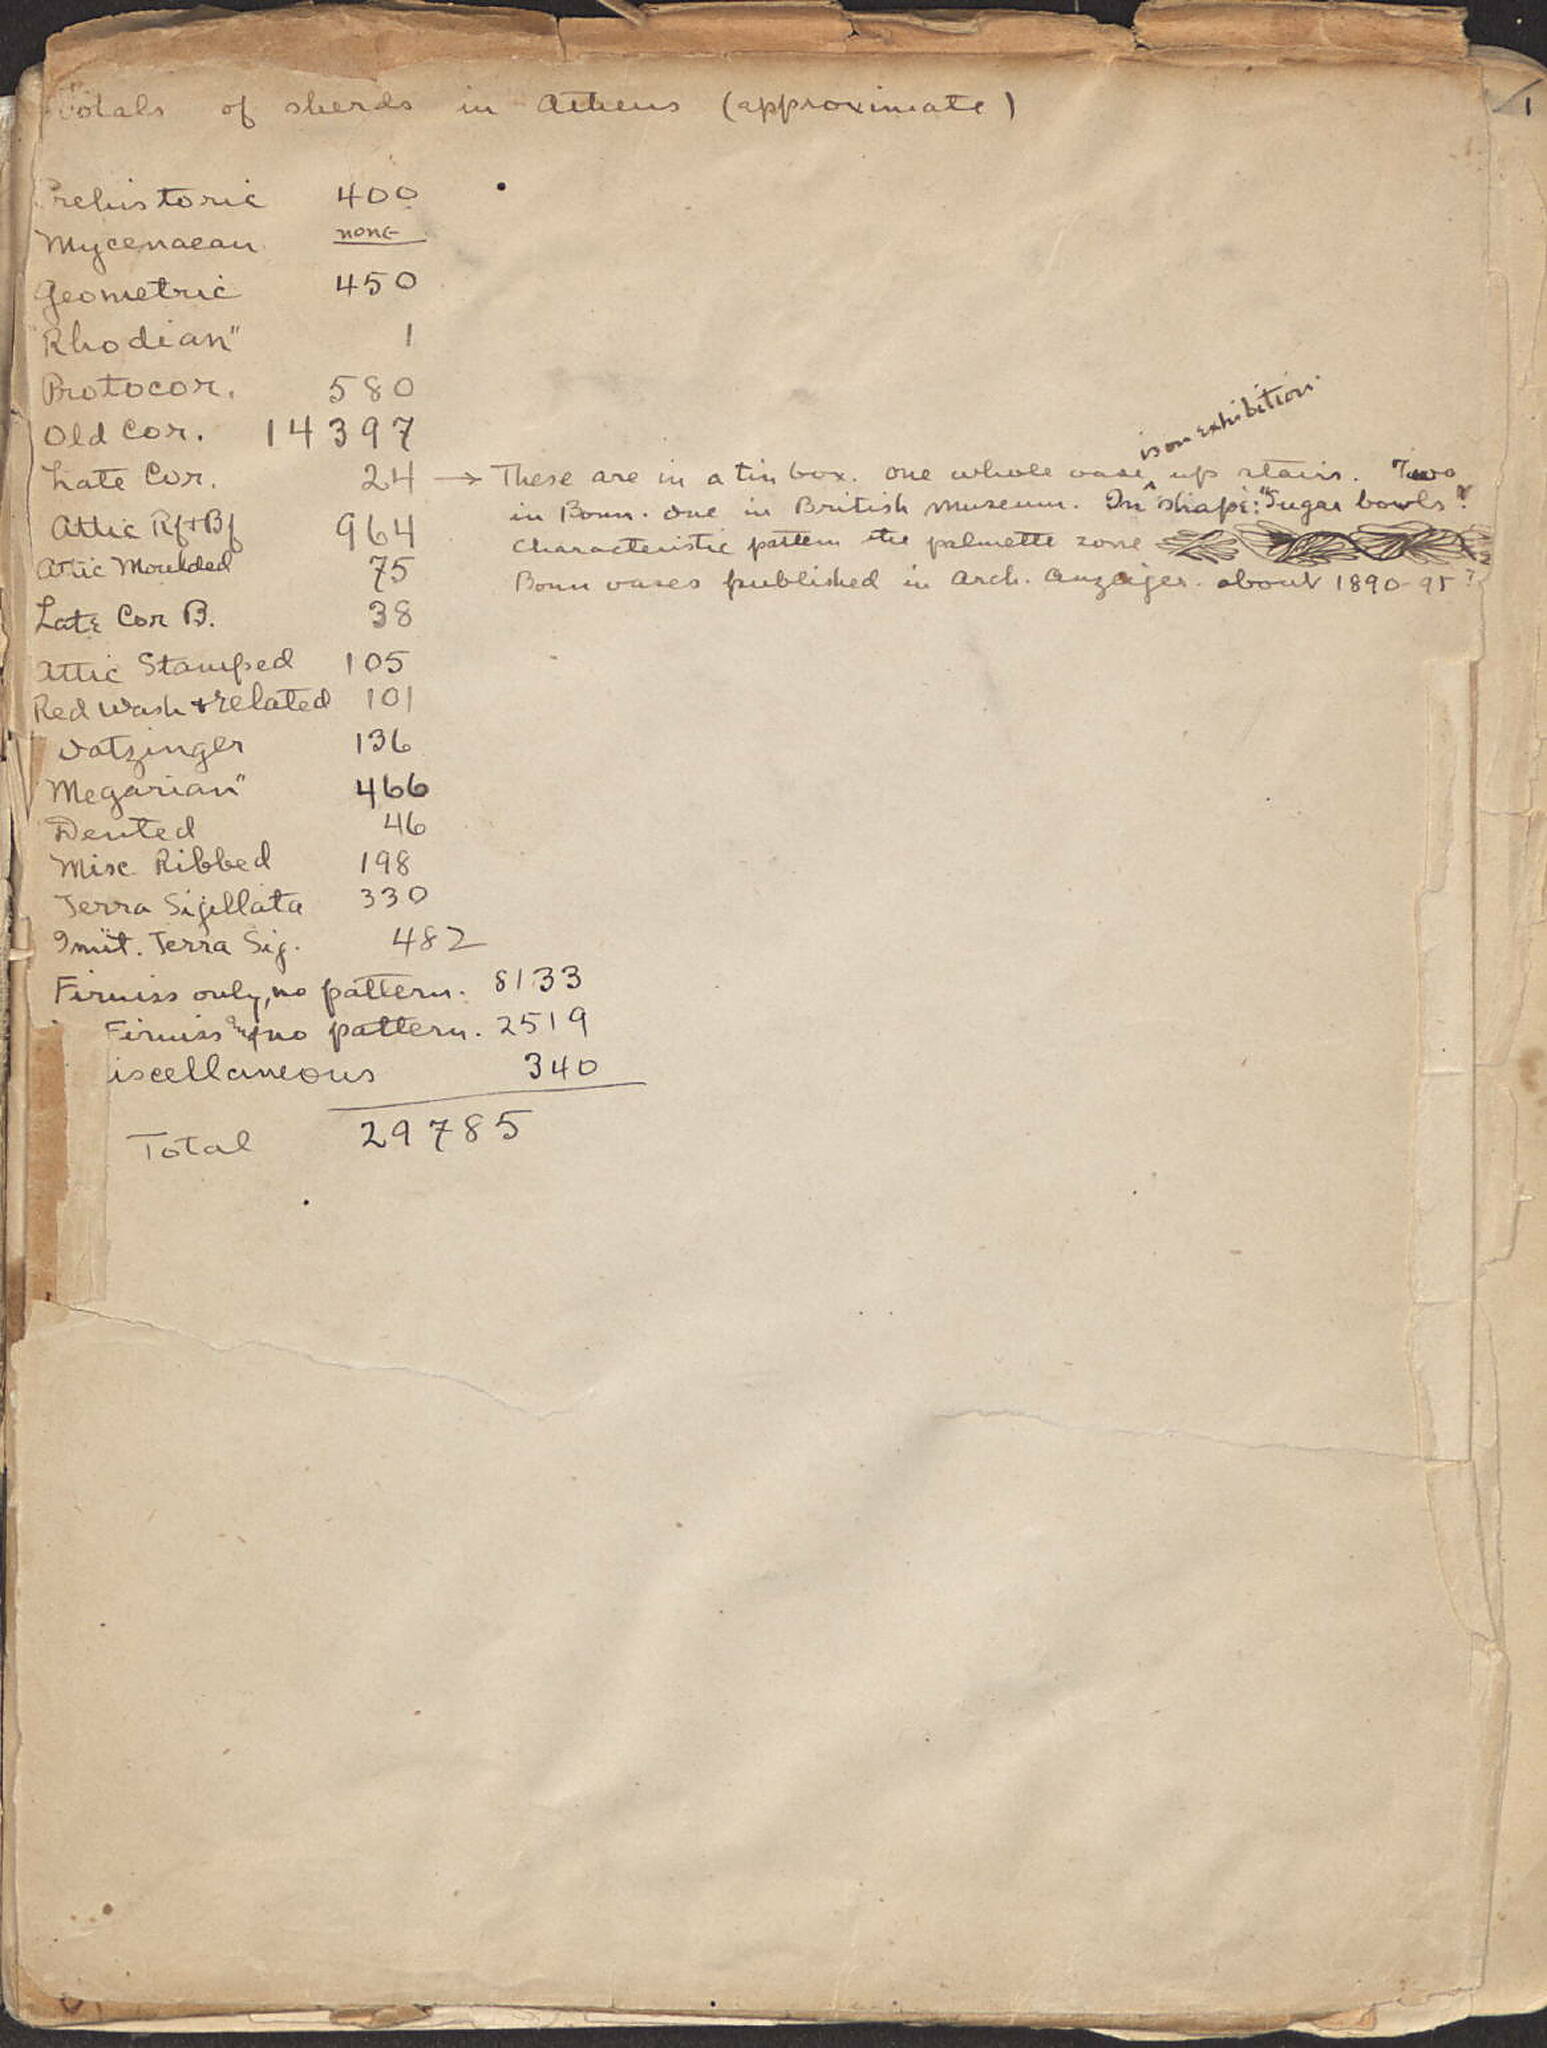 Totals of sherds in Athens (approximate)
1
Prehistoric 400
Mycenaean none
Geometric 450
"Rhodian" 1
Protocor. 580
Old Cor. 14397
Late Cor. 24 → These are in a tin box. One whole vase ^ is on exhibition. up stairs. Two
in Bonn. One in British Museum. In shape: "Sugar bowls".
Characteristic pattern the palmette zone
Bonn vases published in Arch. Anzeiger. about 1890-95?
Attic Rf + Bf 964
Attic Moulded 75
Late Cor B. 38
Attic Stamped 105
Red Wash + related 101
Watzinger 136
"Megarian" 466
Dented 46
Misc. Ribbed 198
Terra Sigillata 330
Imit. Terra Sig. 482
Firniss only, no pattern. 8133
Firniss no pattern. 2519
iscellaneous 340
Total 29785